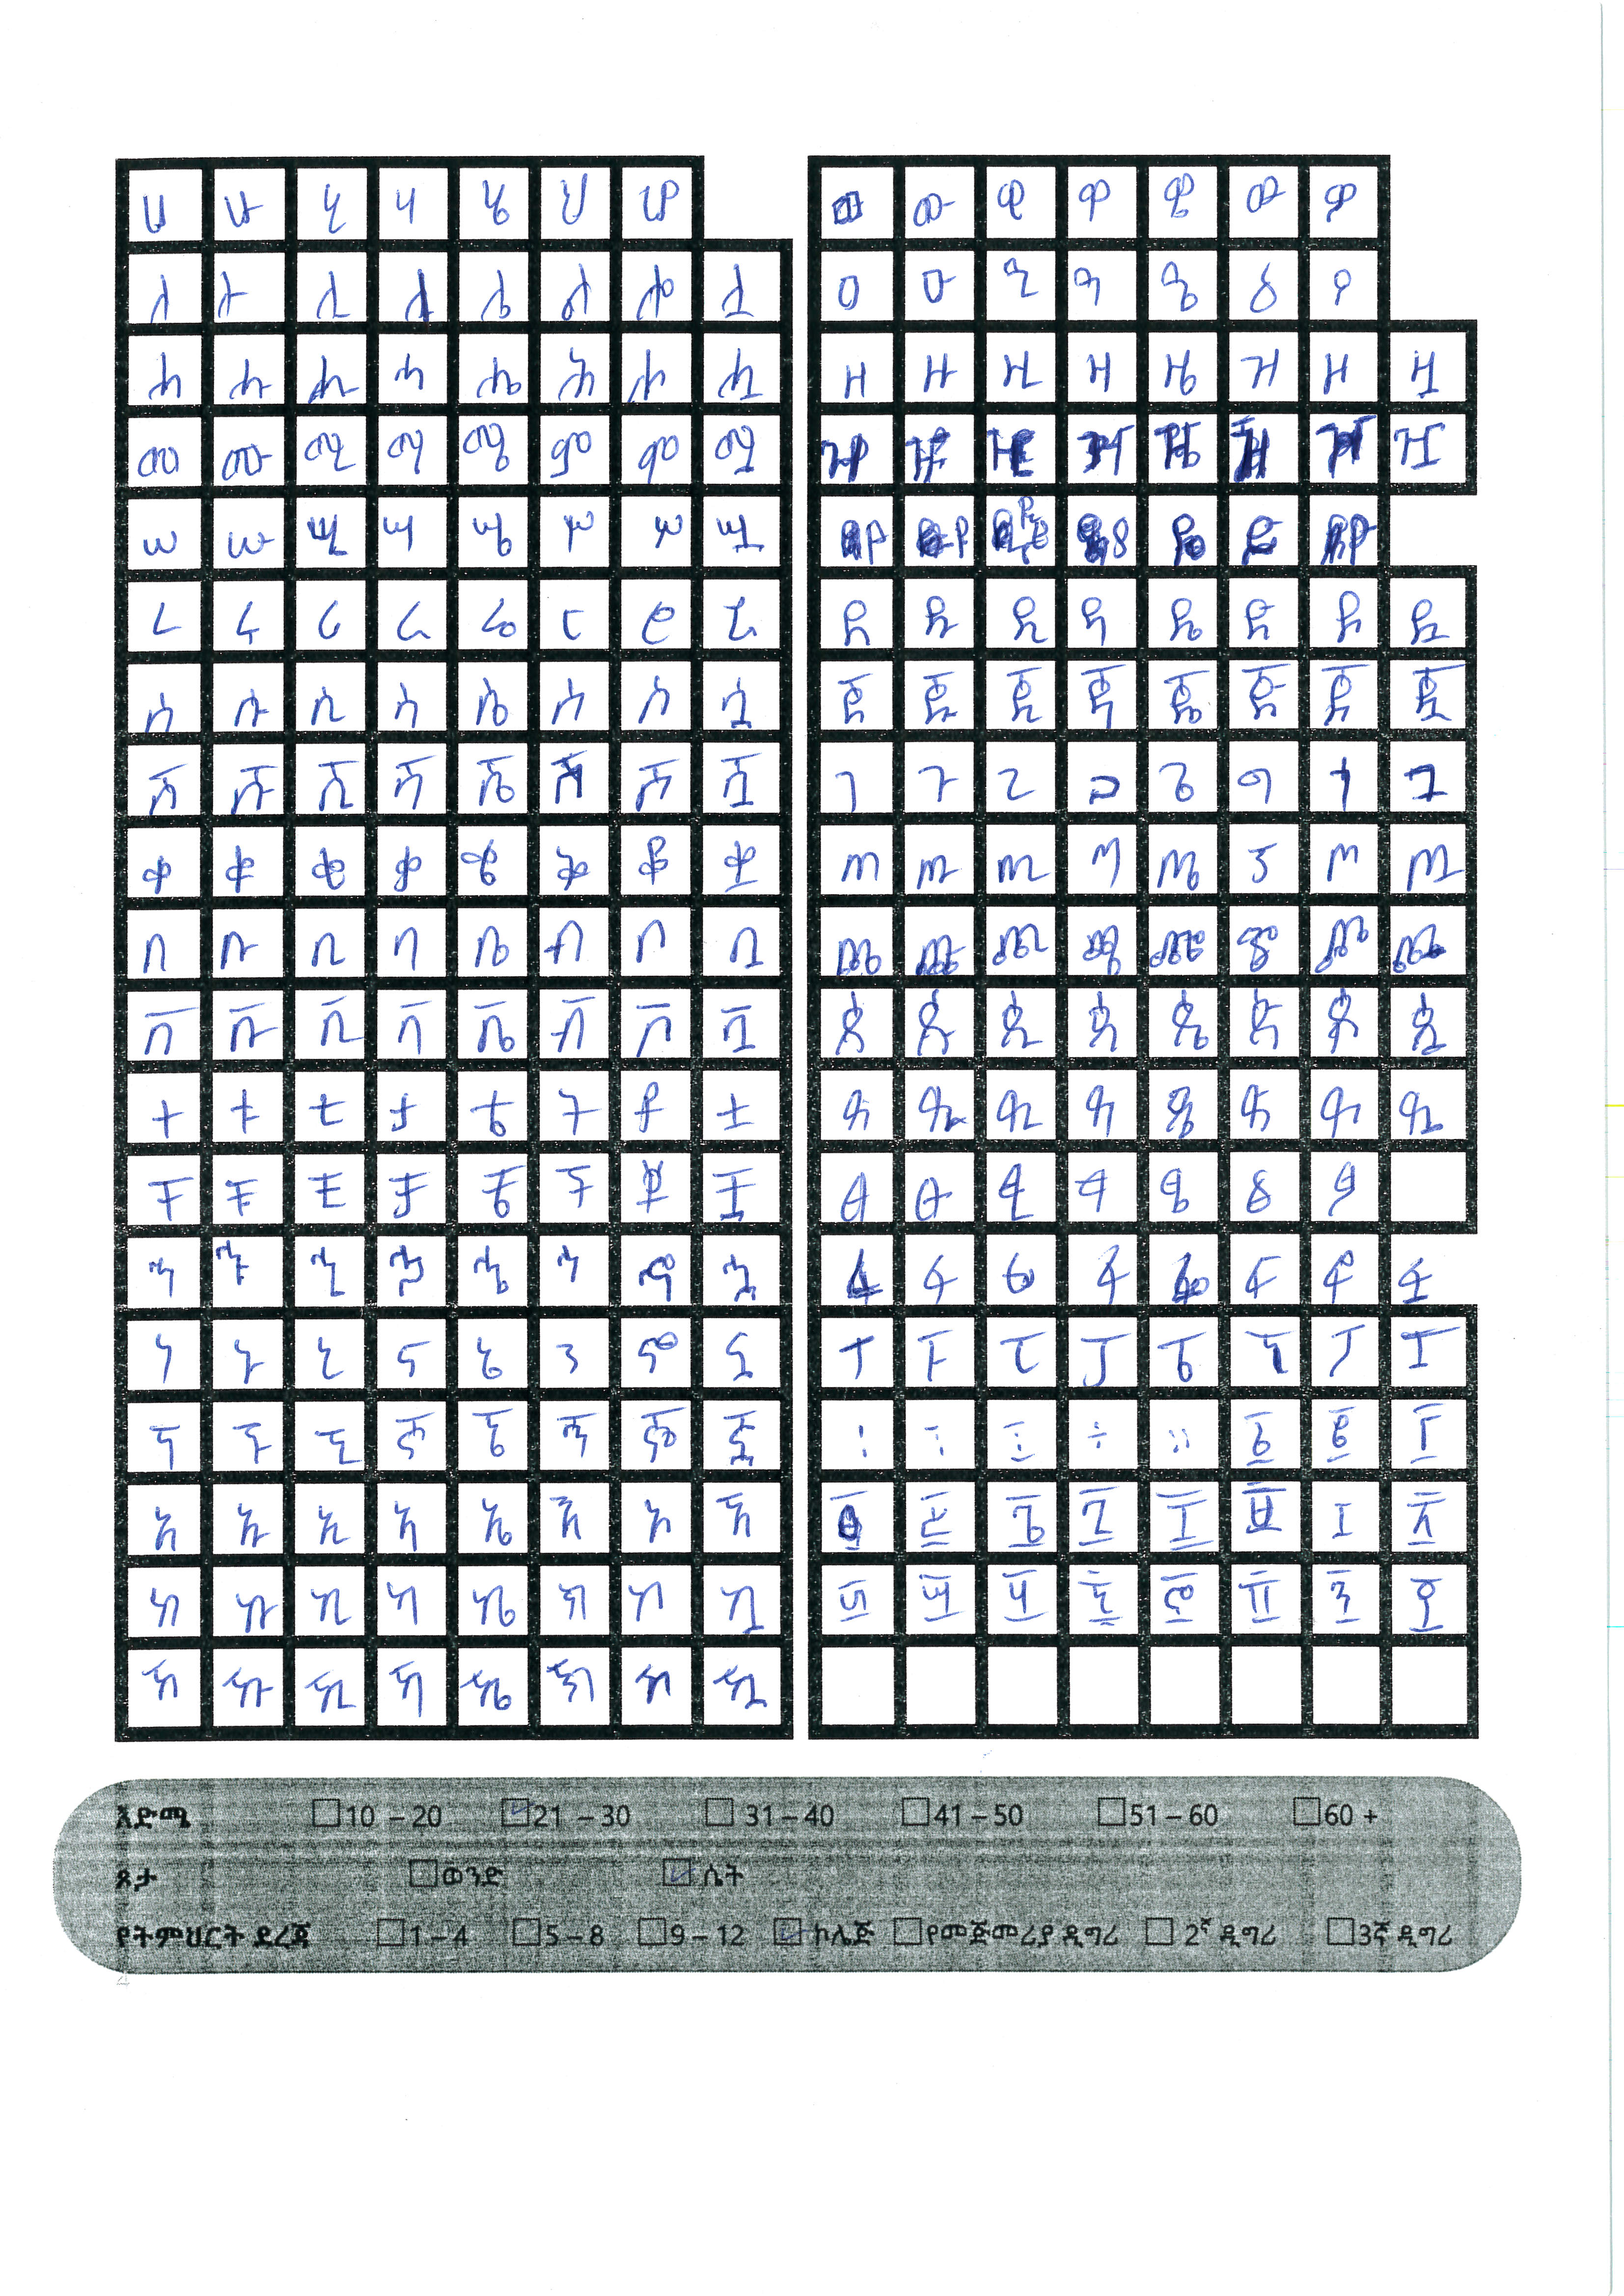 ሀ ሁ ሂ ሃ ሄ ህ ሆ
ለ ሉ ሊ ላ ሌ ል ሎ ሏ
ሐ ሑ ሒ ሓ ሔ ሕ ሖ ሗ
መ ሙ ሚ ማ ሜ ም ሞ ሟ
ሠ ሡ ሢ ሣ ሤ ሥ ሦ ሧ
ረ ሩ ሪ ራ ሬ ር ሮ ሯ
ሰ ሱ ሲ ሳ ሴ ስ ሶ ሷ
ሸ ሹ ሺ ሻ ሼ ሽ ሾ ሿ
ቀ ቁ ቂ ቃ ቄ ቅ ቆ ቋ
በ ቡ ቢ ባ ቤ ብ ቦ ቧ
ቨ ቩ ቪ ቫ ቬ ቭ ቮ ቯ
ተ ቱ ቲ ታ ቴ ት ቶ ቷ
ቸ ቹ ቺ ቻ ቼ ች ቾ ቿ
ኀ ኁ ኂ ኃ ኄ ኅ ኆ ኋ
ነ ኑ ኒ ና ኔ ን ኖ ኗ
ኘ ኙ ኚ ኛ ኜ ኝ ኞ ኟ
አ ኡ ኢ ኣ ኤ እ ኦ ኧ
ከ ኩ ኪ ካ ኬ ክ ኮ ኳ
ኸ ኹ ኺ ኻ ኼ ኽ ኾ ዃ
ወ ዉ ዊ ዋ ዌ ው ዎ
ዐ ዑ ዒ ዓ ዔ ዕ ዖ
ዘ ዙ ዚ ዛ ዜ ዝ ዞ ዟ
ዧ
ደ ዱ ዲ ዳ ዴ ድ ዶ ዷ
ጀ ጁ ጂ ጃ ጄ ጅ ጆ ጇ
ገ ጉ ጊ ጋ ጌ ግ ጎ ጓ
ጠ ጡ ጢ ጣ ጤ ጥ ጦ ጧ
ጨ ጩ ጪ ጫ ጬ ጭ ጮ ጯ
ጰ ጱ ጲ ጳ ጴ ጵ ጶ ጷ
ጸ ጹ ጺ ጻ ጼ ጽ ጾ ጿ
ፀ ፁ ፂ ፃ ፄ ፅ ፆ
ፈ ፉ ፊ ፋ ፌ ፍ ፎ ፏ
ፐ ፑ ፒ ፓ ፔ ፕ ፖ ፗ
፡ ፥ ፤ ። ፩ ፪ ፫
፬ ፭ ፮ ፯ ፰ ፱ ፲ ፳
፴ ፵ ፶ ፷ ፸ ፹ ፺ ፻
እድሜ 10 – 20 21 – 30 31 – 40 41 – 50 51 – 60 60 +
ጾታ ወንድ ሴት
የትምህርት ደረጃ 1 – 4 5 – 8 9 – 12 ኮሌጅ የመጀመሪያ ዲግሪ 2ኛ ዲግሪ 3ኛ ዲግሪ